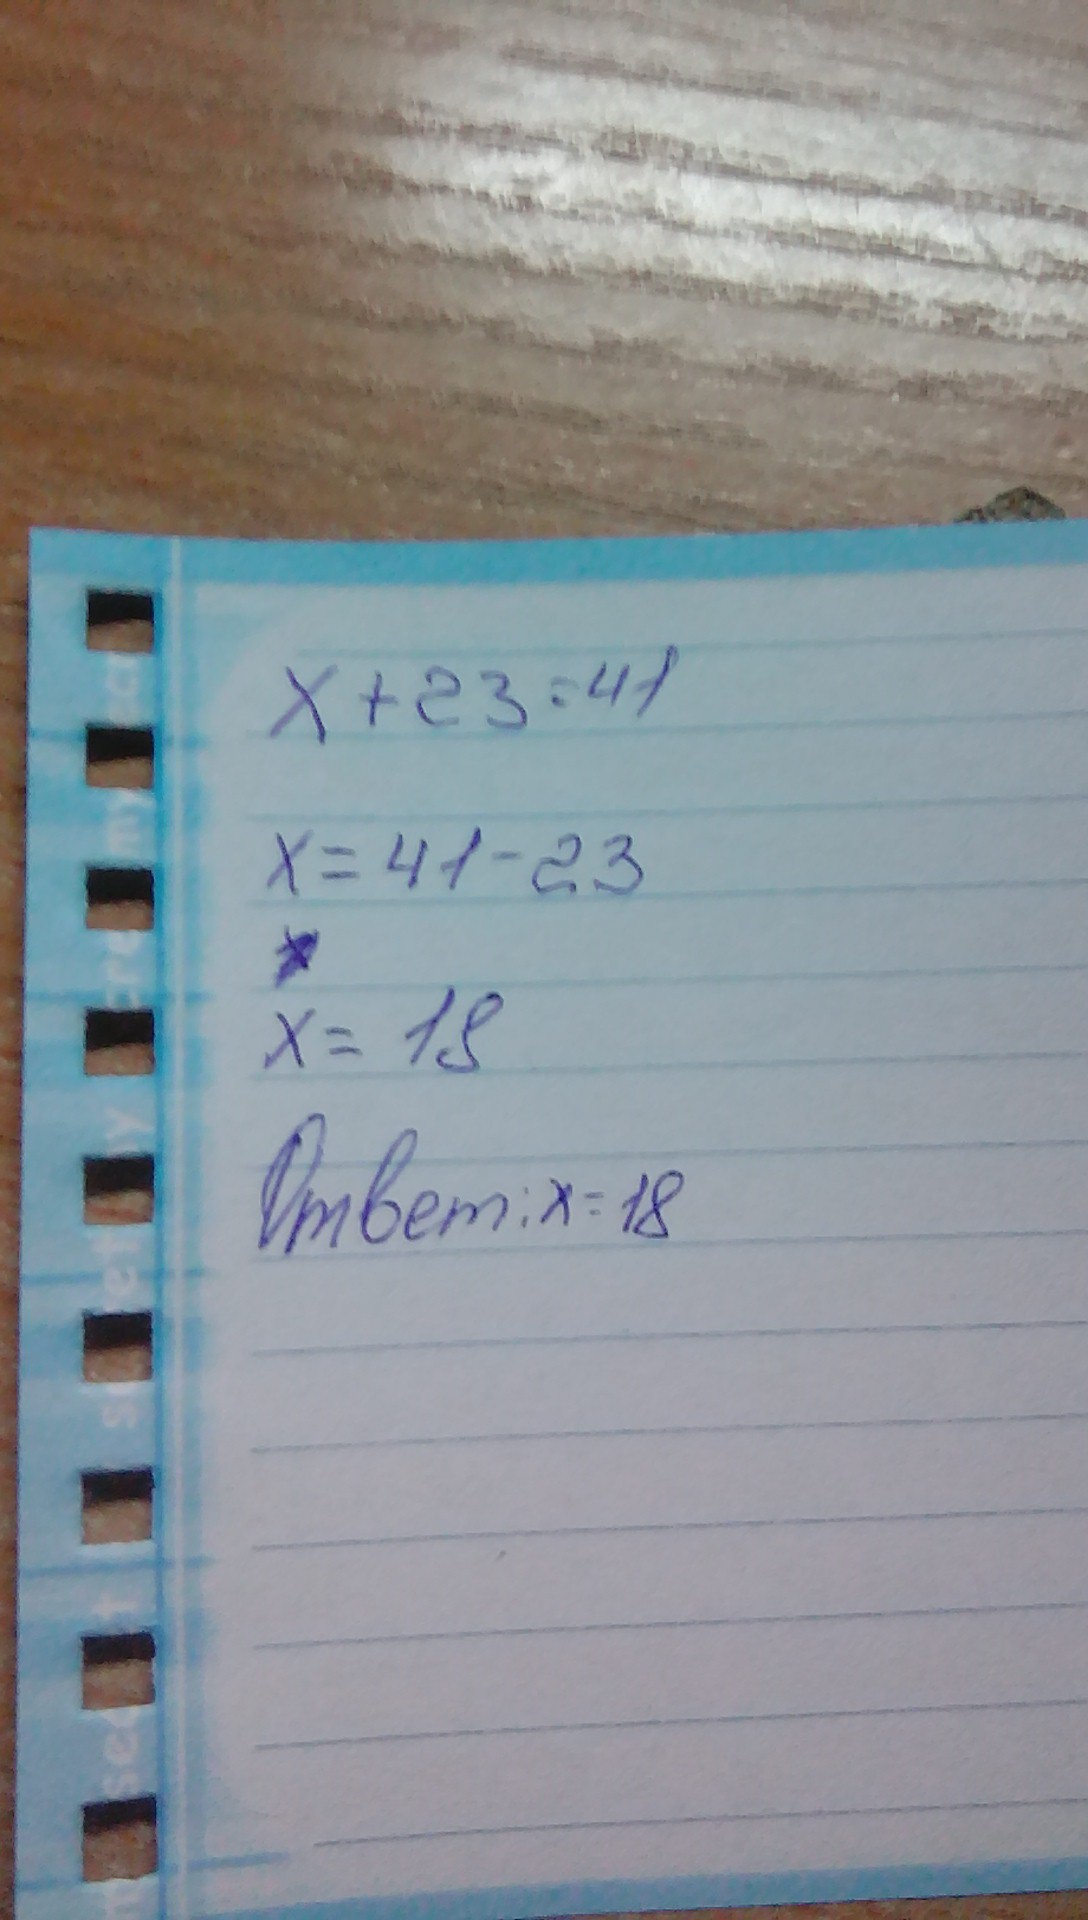 x+23=41
x=41-23
x= 18
Ответ: x=18